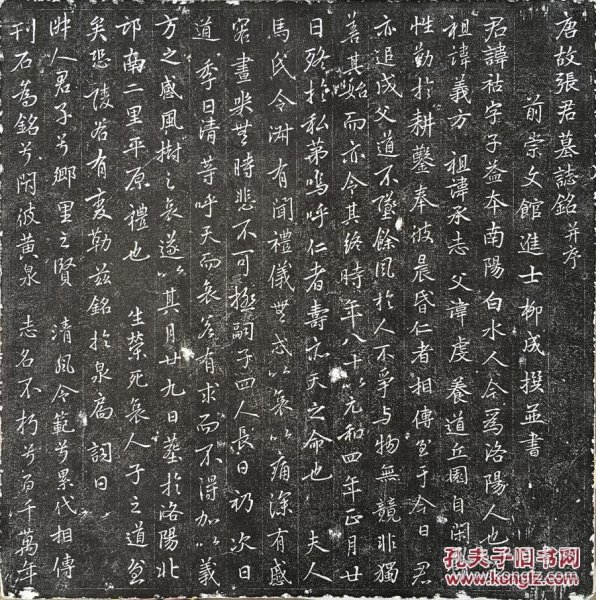 唐故張君墓誌銘并序
前崇文館進士柳成撰並書
君諱祜字子益本南陽白水人今爲洛陽人也
祖諱義方祖諱承志父諱虔養道丘園自閑
性勤於耕鑿奉彼晨昏仁者相傳至于今日君
亦追成父道不墜餘風於人不爭与物無競非獨
善其始而亦令其終時年八十以元和四年正月廿
日終於私第嗚呼仁者壽亦天之命也夫人
馬氏令淋有聞禮儀無忒以哀以痛深有感
容晝哭無時悲不可極嗣子四人長曰礽次曰
道季曰清等呼天而哀若有求而不得加以義
方之感風樹之哀遂以其月廿九日葬於洛陽北
邙南二里平原禮也生榮死哀人子之道至
矣恐陵谷有變勒兹銘於泉扃詞曰
時人君子兮鄉里之賢清風令範兮累代相傳
刊石爲銘兮閇彼黃泉志名不朽兮百千萬年
孔夫子旧书网
www.kongfz.com